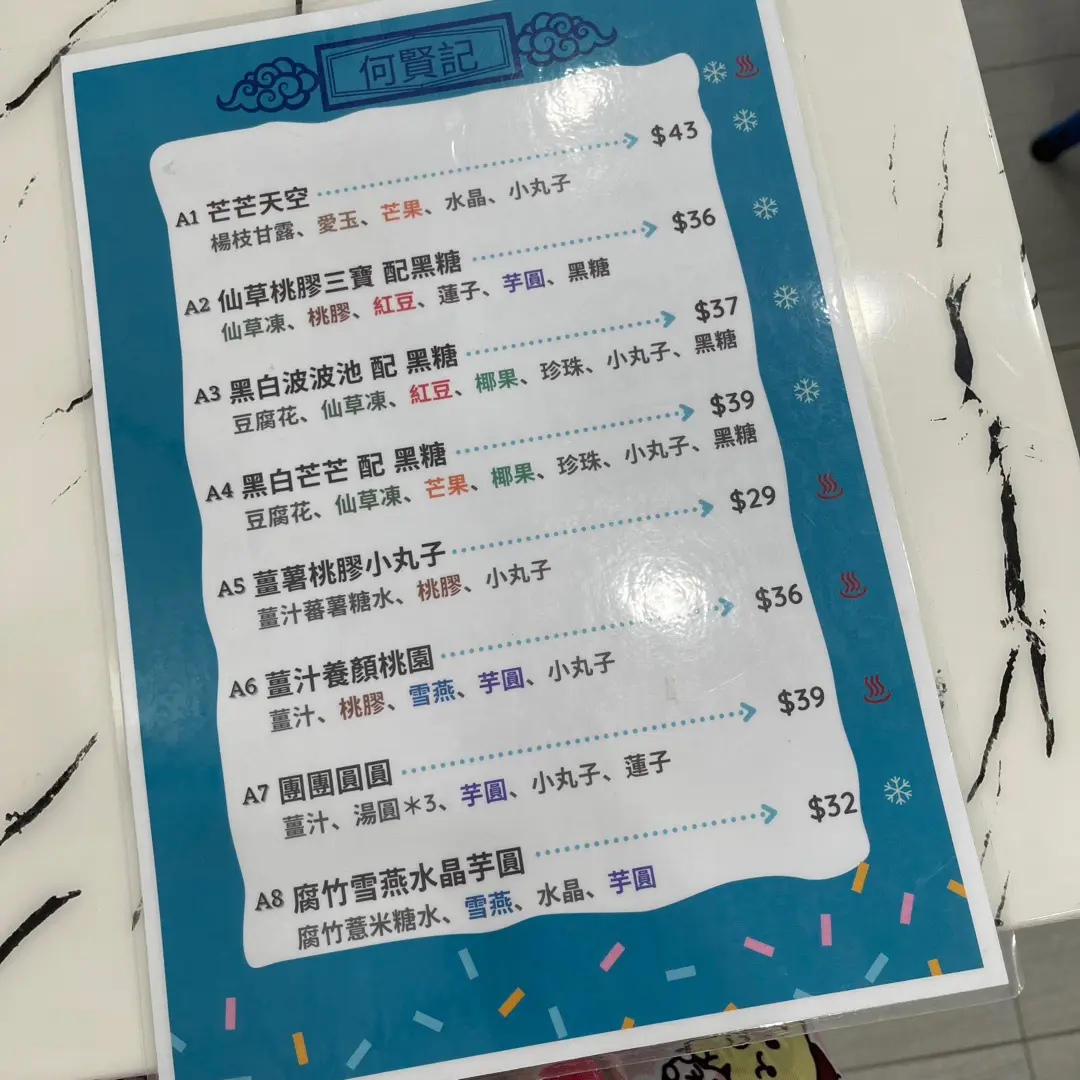 何賢記
A1 芒芒天空 $43
楊枝甘露、愛玉、芒果、水晶、小丸子
A2 仙草桃膠三寶 配黑糖 $36
仙草凍、桃膠、紅豆、蓮子、芋圓、黑糖
A3 黑白波波池 配 黑糖 $37
豆腐花、仙草凍、紅豆、椰果、珍珠、小丸子、黑糖
A4 黑白芒芒 配 黑糖 $39
豆腐花、仙草凍、芒果、椰果、珍珠、小丸子、黑糖
A5 薑薯桃膠小丸子 $29
薑汁蕃薯糖水、桃膠、小丸子
A6 薑汁養顏桃園 $36
薑汁、桃膠、雪燕、芋圓、小丸子
A7 團團圓圓 $39
薑汁、湯圓＊3、芋圓、小丸子、蓮子
A8 腐竹雪燕水晶芋圓 $32
腐竹薏米糖水、雪燕、水晶、芋圓